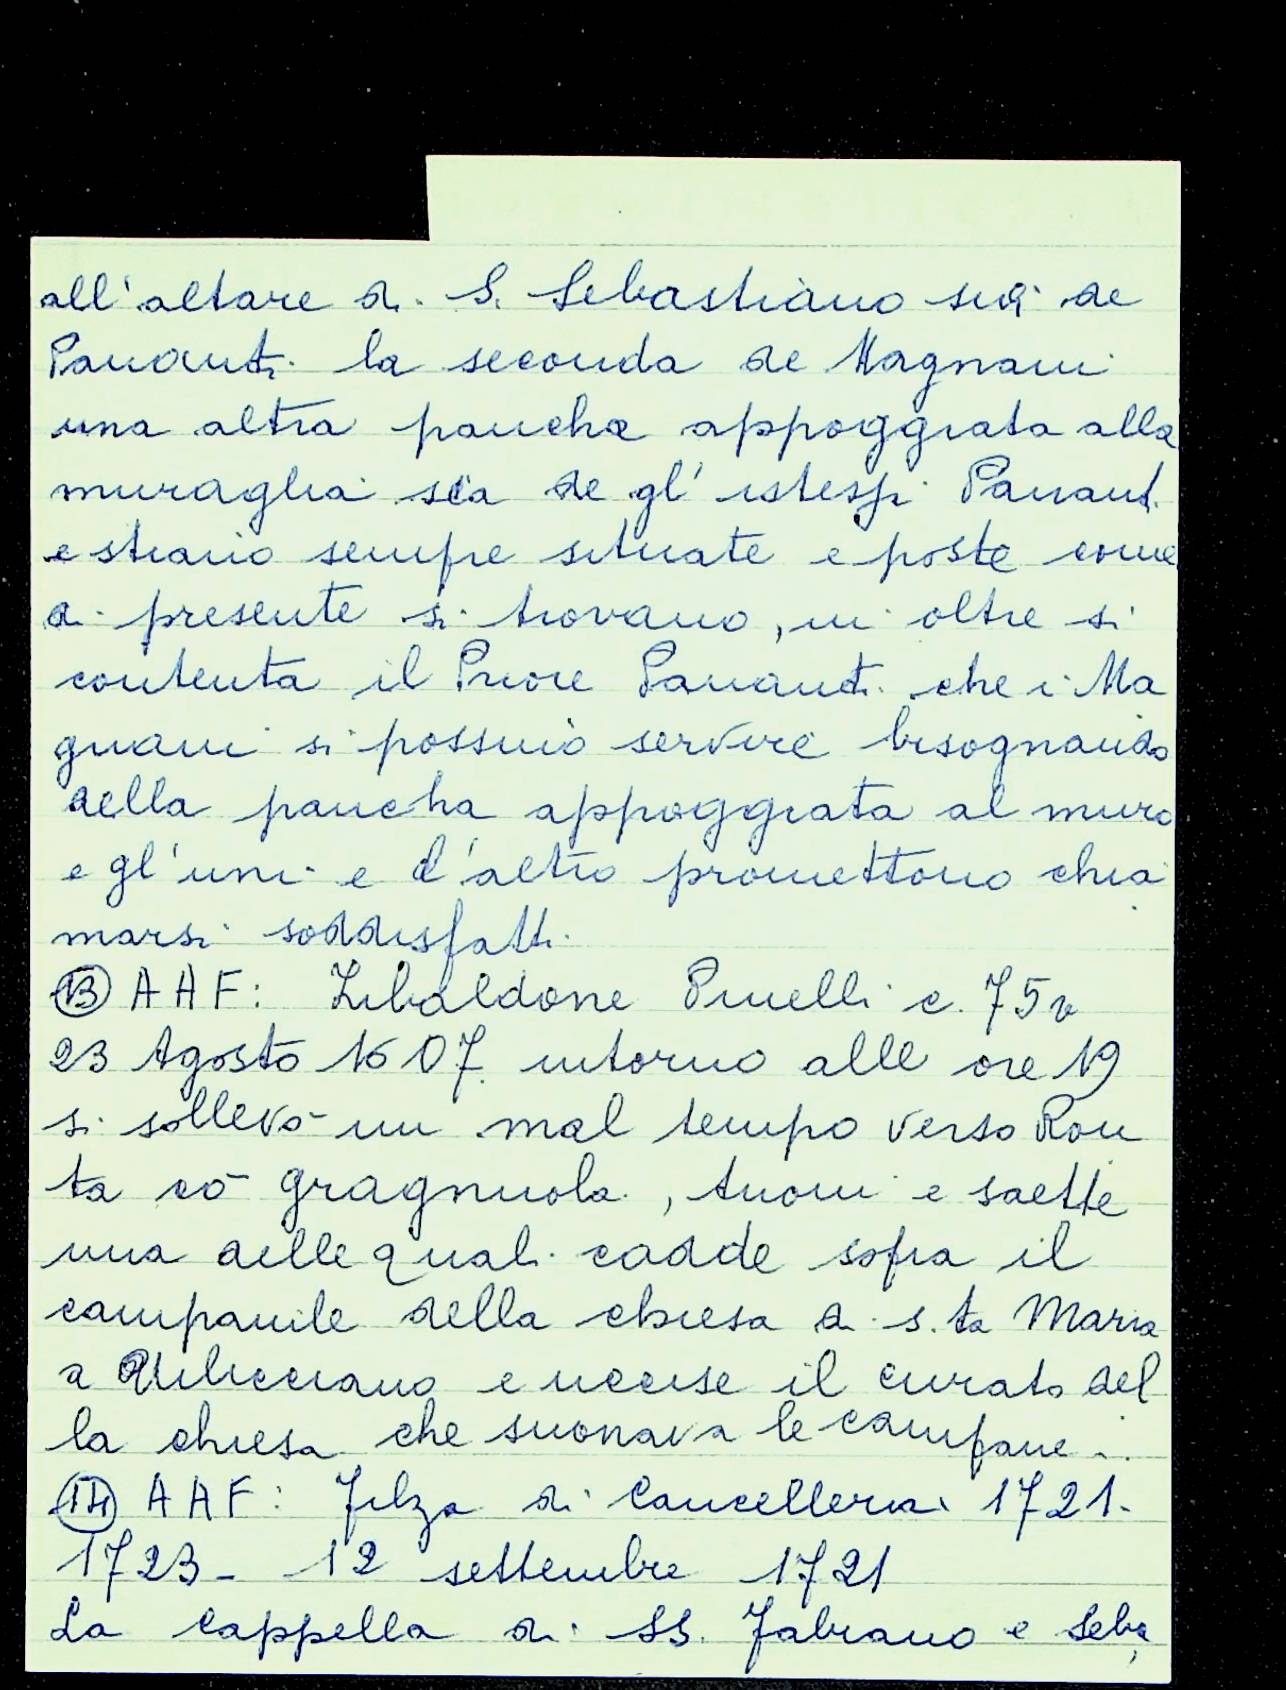 all'altare di S. Sebastiano sia de
Pananti la seconda de Magnani
una altra pancha appoggiata alla
muraglia sia de gl' istessi Panant.
e stiano sempre situate e poste come
di presente si trovano, in oltre si
contenta il Priore Pananti che i Ma
gnani si possino servire bisognando
della pancha appoggiata al muro
e gl'uni e l'altro promettono chia
marsi soddisfatti.
(13) AAF: Zibaldone Pinelli c. 75v
23 Agosto 1607 intorno alle ore 19
si sollevò un mal tempo verso Ron
ta cō gragnuola, tuoni e saette
una delle quali cadde sopra il
campanile della chiesa di s.ta Maria
a Pulicciano e uccise il curato del
la chiesa che suonava le campane..
(14) AAF: Filza di Cancelleria 1721-
1723 - 12 settembre 1721
La cappella di SS. Fabiano e Seba